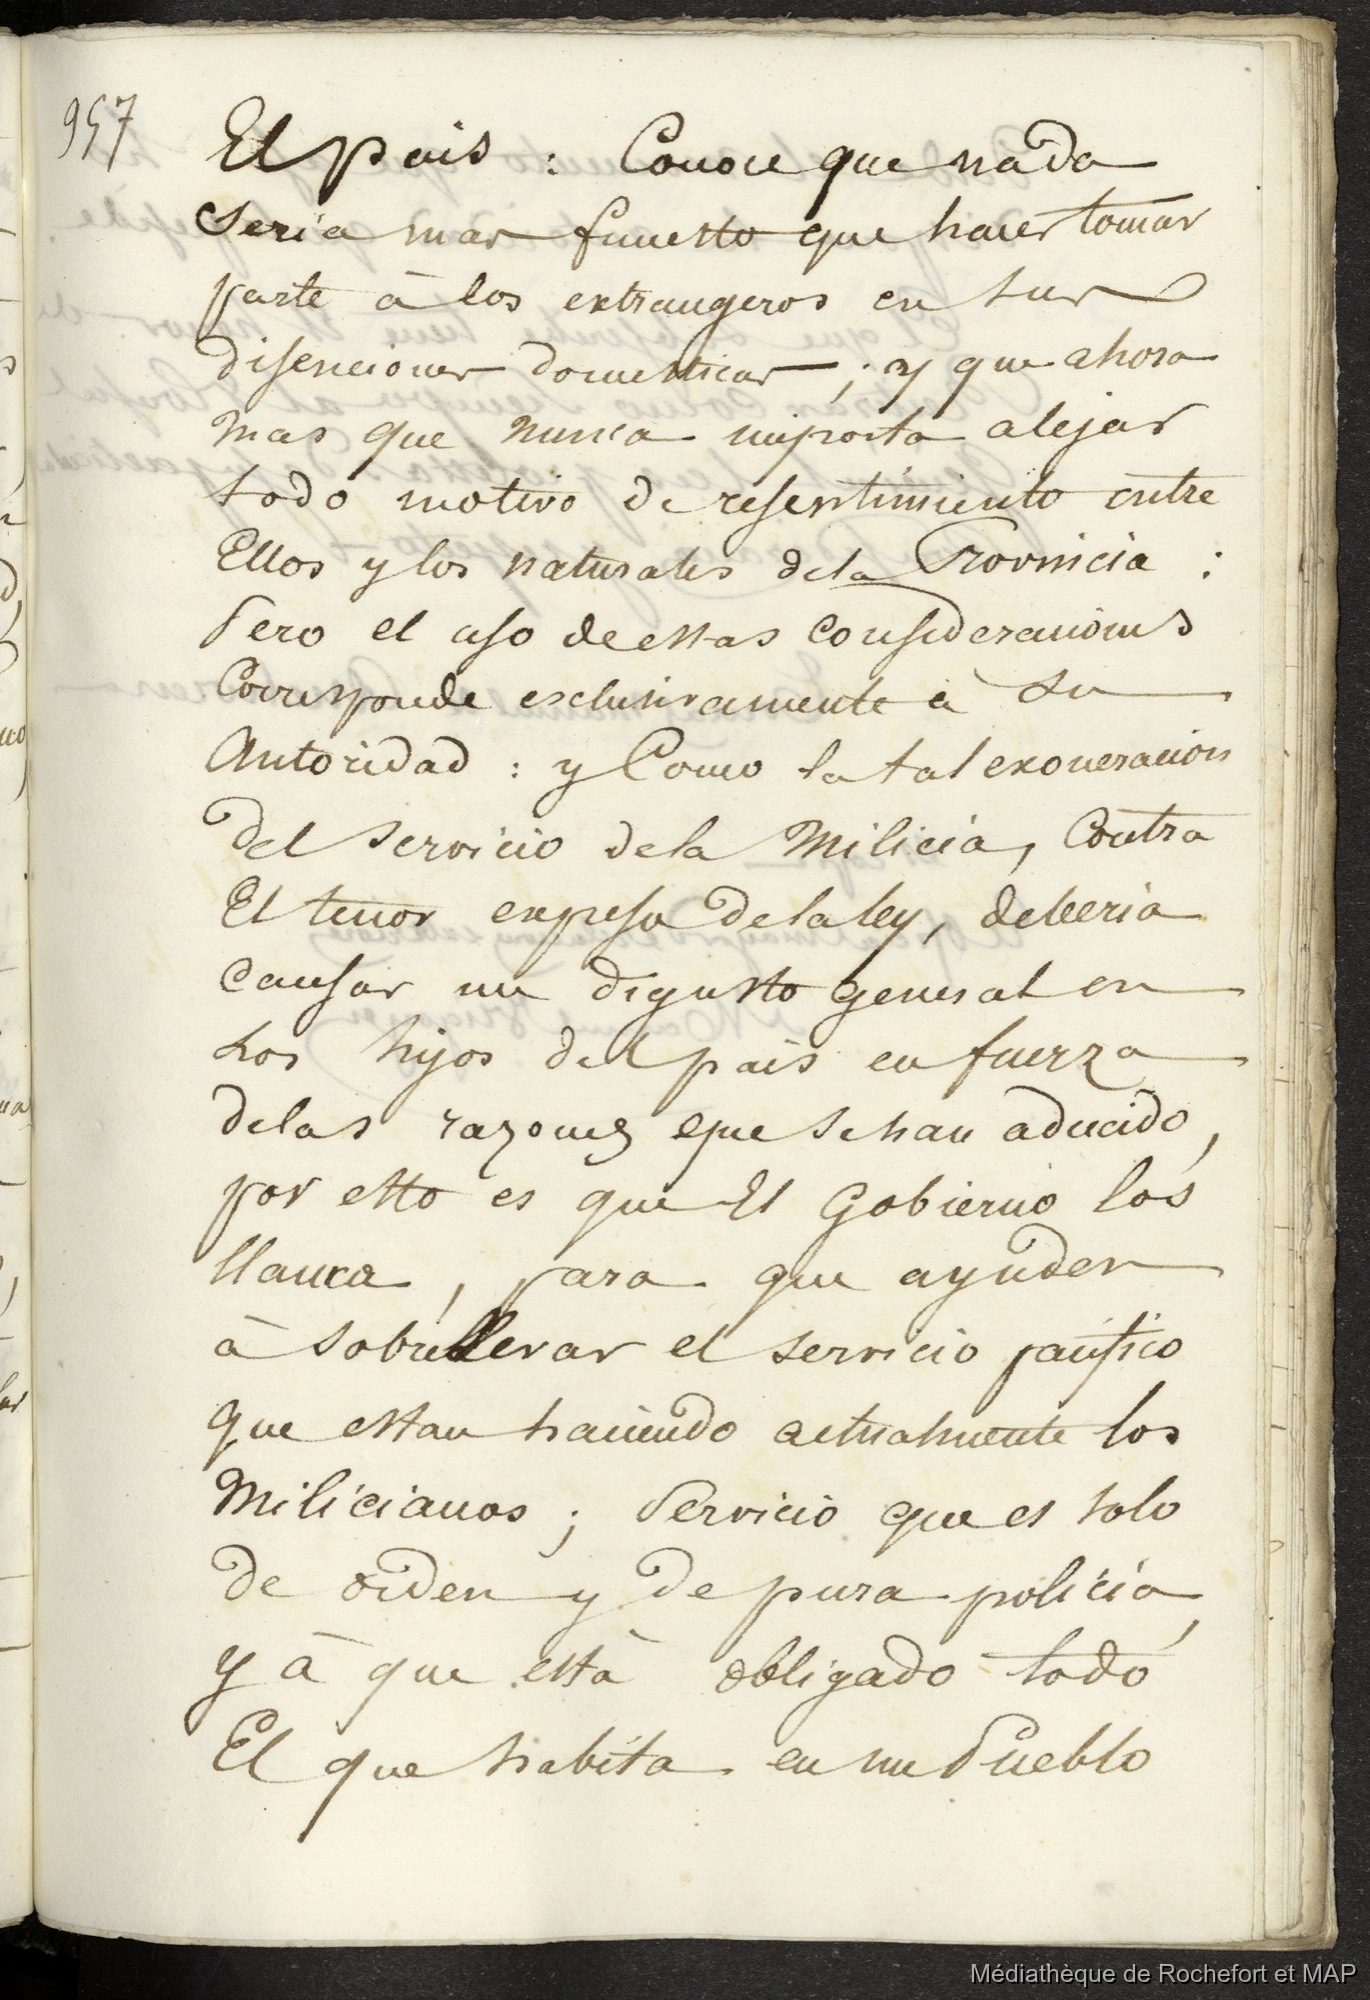 957
El pais : Conoce que nada
Seria mas funesto que hacer tomar
parte à los extrangeros en sus
disenciones domesticas ; y que ahora
mas que nunca importa alejar
todo motivo de resentimiento entre
Ellos y los naturales de la Provincia :
Pero el uso de estas consideraciones
Corresponde esclusivamente à su
Autoridad : y Como la tal exoneracion
del servicio de la Milicia, Contra
El tenor expreso de la ley, debería
Causar un digusto general en
Los hijos del pais en fuerza
de las razones que se han aducido,
por esto es que El Gobierno los
llama, para que ayuden
à sobrellevar el servicio pacifico
que estan haciendo actualmente los
Milicianos ; Servicio que es solo
de orden y de pura policia,
y à que està obligado todo
El que habita en un Pueblo
Médiathèque de Rochefort et MAP